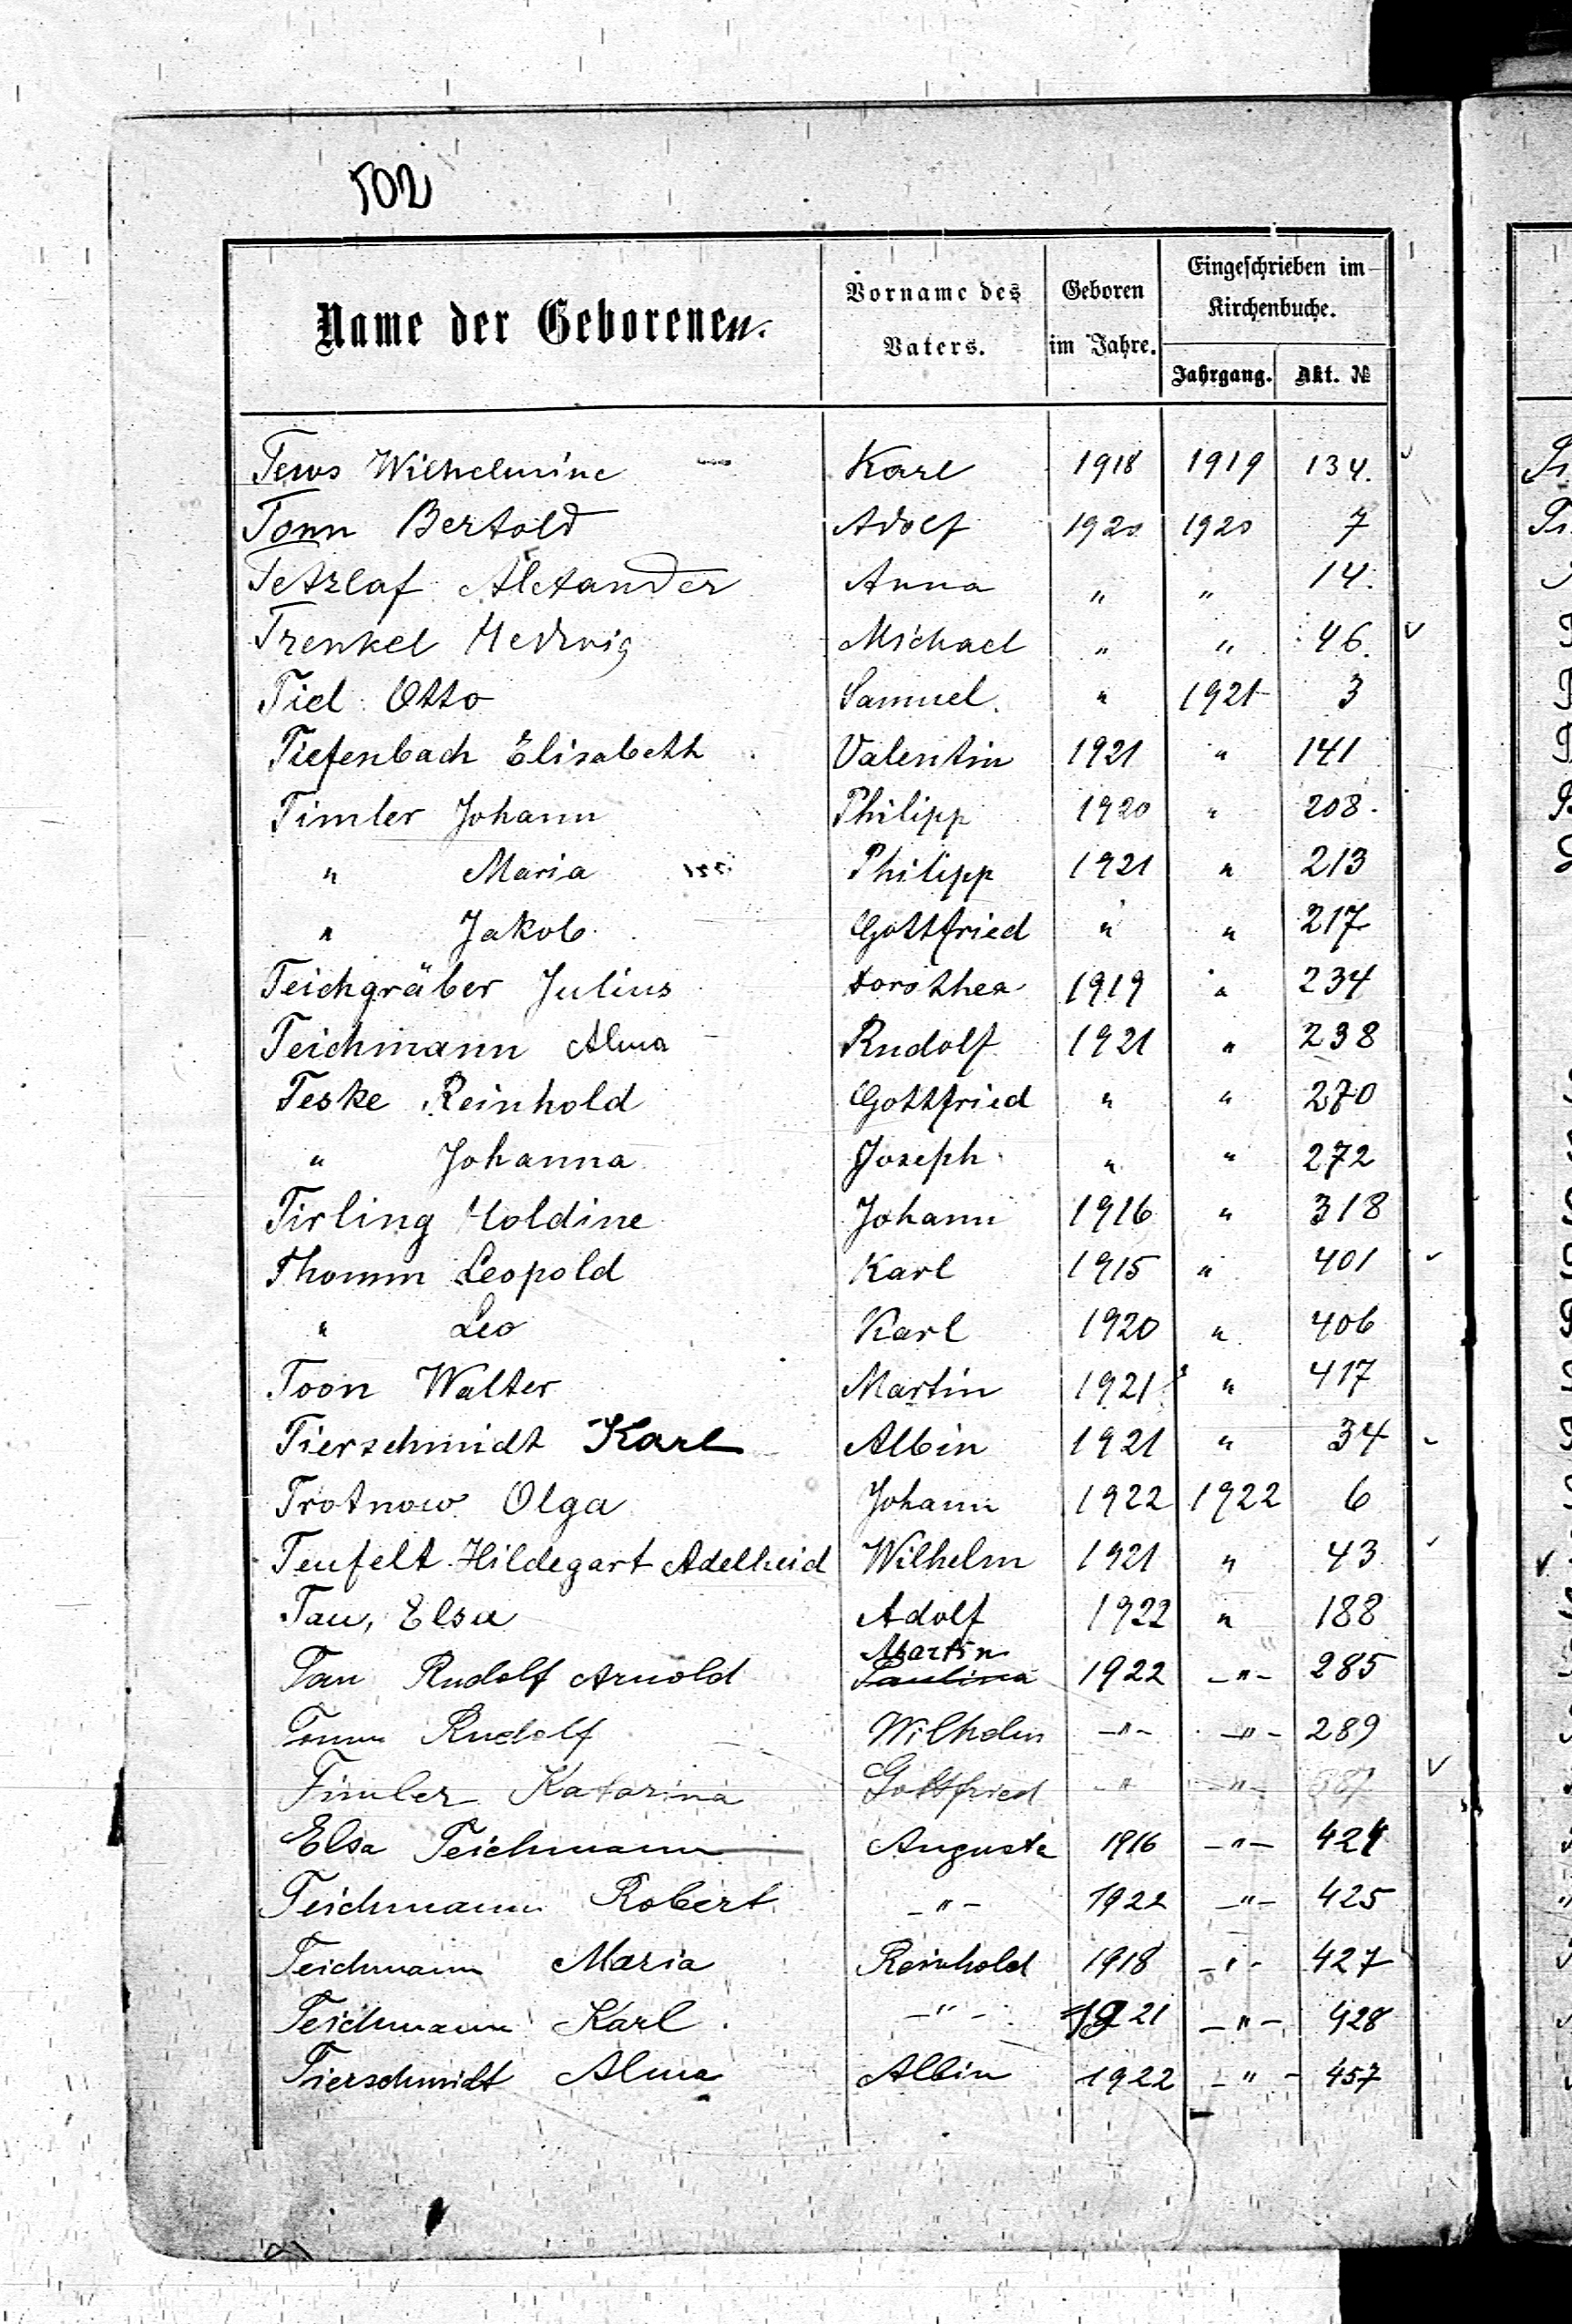 502
Name der Geborenen. Vorname des Vaters. Geboren im Jahre. Eingeschrieben im Kirchenbuche.
Jahrgang. Akt. №
Tews Wilhelmine Karl 1918 1919 134.
Tonn Bertold Adolf 1920 1920 7
Tetzlaf Alexander Anna " " 14.
Trenkel Hedwig Michael " " 46.
Tiel Otto Samuel. " 1921 3
Tiefenbach Elisabeth Valentin 1921 " 141
Timler Johann Philipp 1920 " 208.
" Maria Philipp 1921 " 213
" Jakob Gottfried " " 217
Teichgräber Julius Dorothea 1919 " 234
Teichmann Alma Rudolf 1921 " 238
Teske Reinhold Gottfried " " 270
" Johanna Joseph " " 272
Tirling Holdine Johann 1916 " 318
Thomm Leopold Karl 1915 " 401
" Leo Karl 1920 " 406
Toon Walter Martin 1921 " 417
Tierschmidt Karl Albin 1921 " 34
Trotnow Olga Johann 1922 1922 6
Teufelt Hildegart Adelheid Wilhelm 1921 " 43
Tau, Elsa Adolf 1922 " 188
Martin
Tau Rudolf Arnold Paulina 1922 -"- 285
Tonn Rudolf Wilhelm -"- -"- 289
Timler Katarina Gottfried -"- -"-
Elsa Teichmann Auguste 1916 -"- 424
Teichmann Robert -"- 1922 -"- 425
Teichmann Maria Reinhold 1918 -"- 427
Teichmann Karl. -"- 1921 -"- 428
Tierschmidt Alma Albin 1922 -"- 457